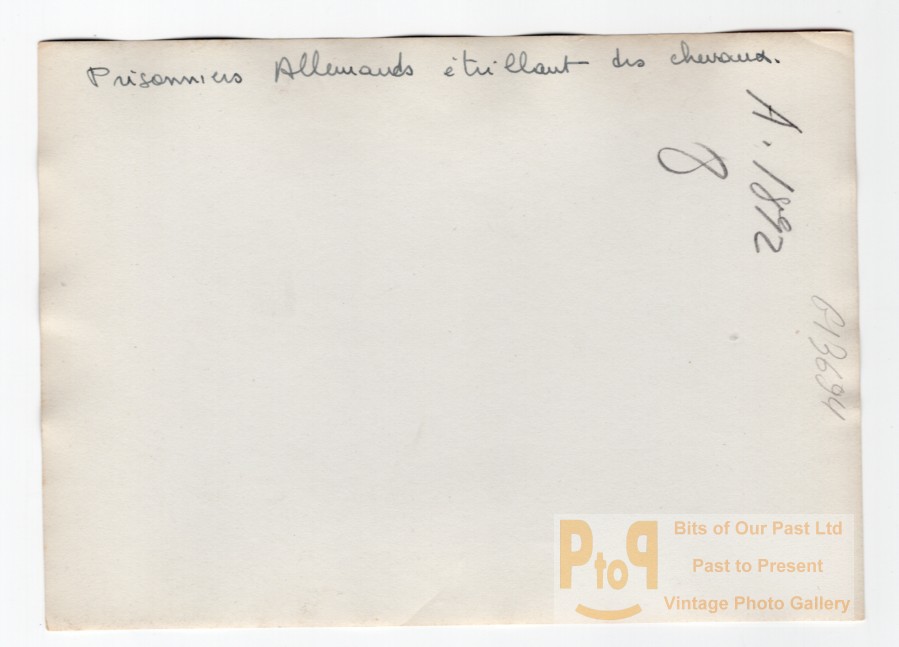 Prisonniers Allemands étrillant des chevaux.
A. 1892
8
P13694
PtoP
Bits of Our Past Ltd
Past to Present
Vintage Photo Gallery